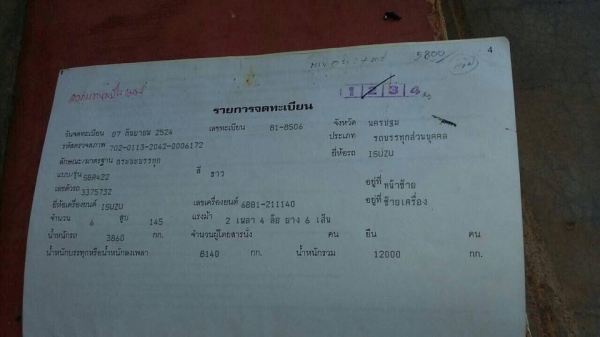 4
9800
1 2 3 4
รายการจดทะเบียน
วันจดทะเบียน 07 กันยายน 2524 เลขทะเบียน 81-8506 จังหวัด นครปฐม
รหัสตรวจสภาพ 702-0113-2042-0006172 ประเภท รถบรรทุกส่วนบุคคล
ลักษณะ/มาตรฐาน กระบะบรรทุก ยี่ห้อรถ ISUZU
แบบ/รุ่น SBR422 สี ขาว
เลขตัวรถ 3375732 อยู่ที่ หน้าซ้าย
ยี่ห้อเครื่องยนต์ ISUZU เลขเครื่องยนต์ 6BB1-211140 อยู่ที่ ซ้ายเครื่อง
จำนวน 6 สูบ 145 แรงม้า 2 เพลา 4 ล้อ ยาง 6 เส้น
น้ำหนักรถ 3860 กก. จำนวนผู้โดยสารนั่ง คน ยืน คน
น้ำหนักบรรทุกหรือน้ำหนักลงเพลา 8140 กก. น้ำหนักรวม 12000 กก.